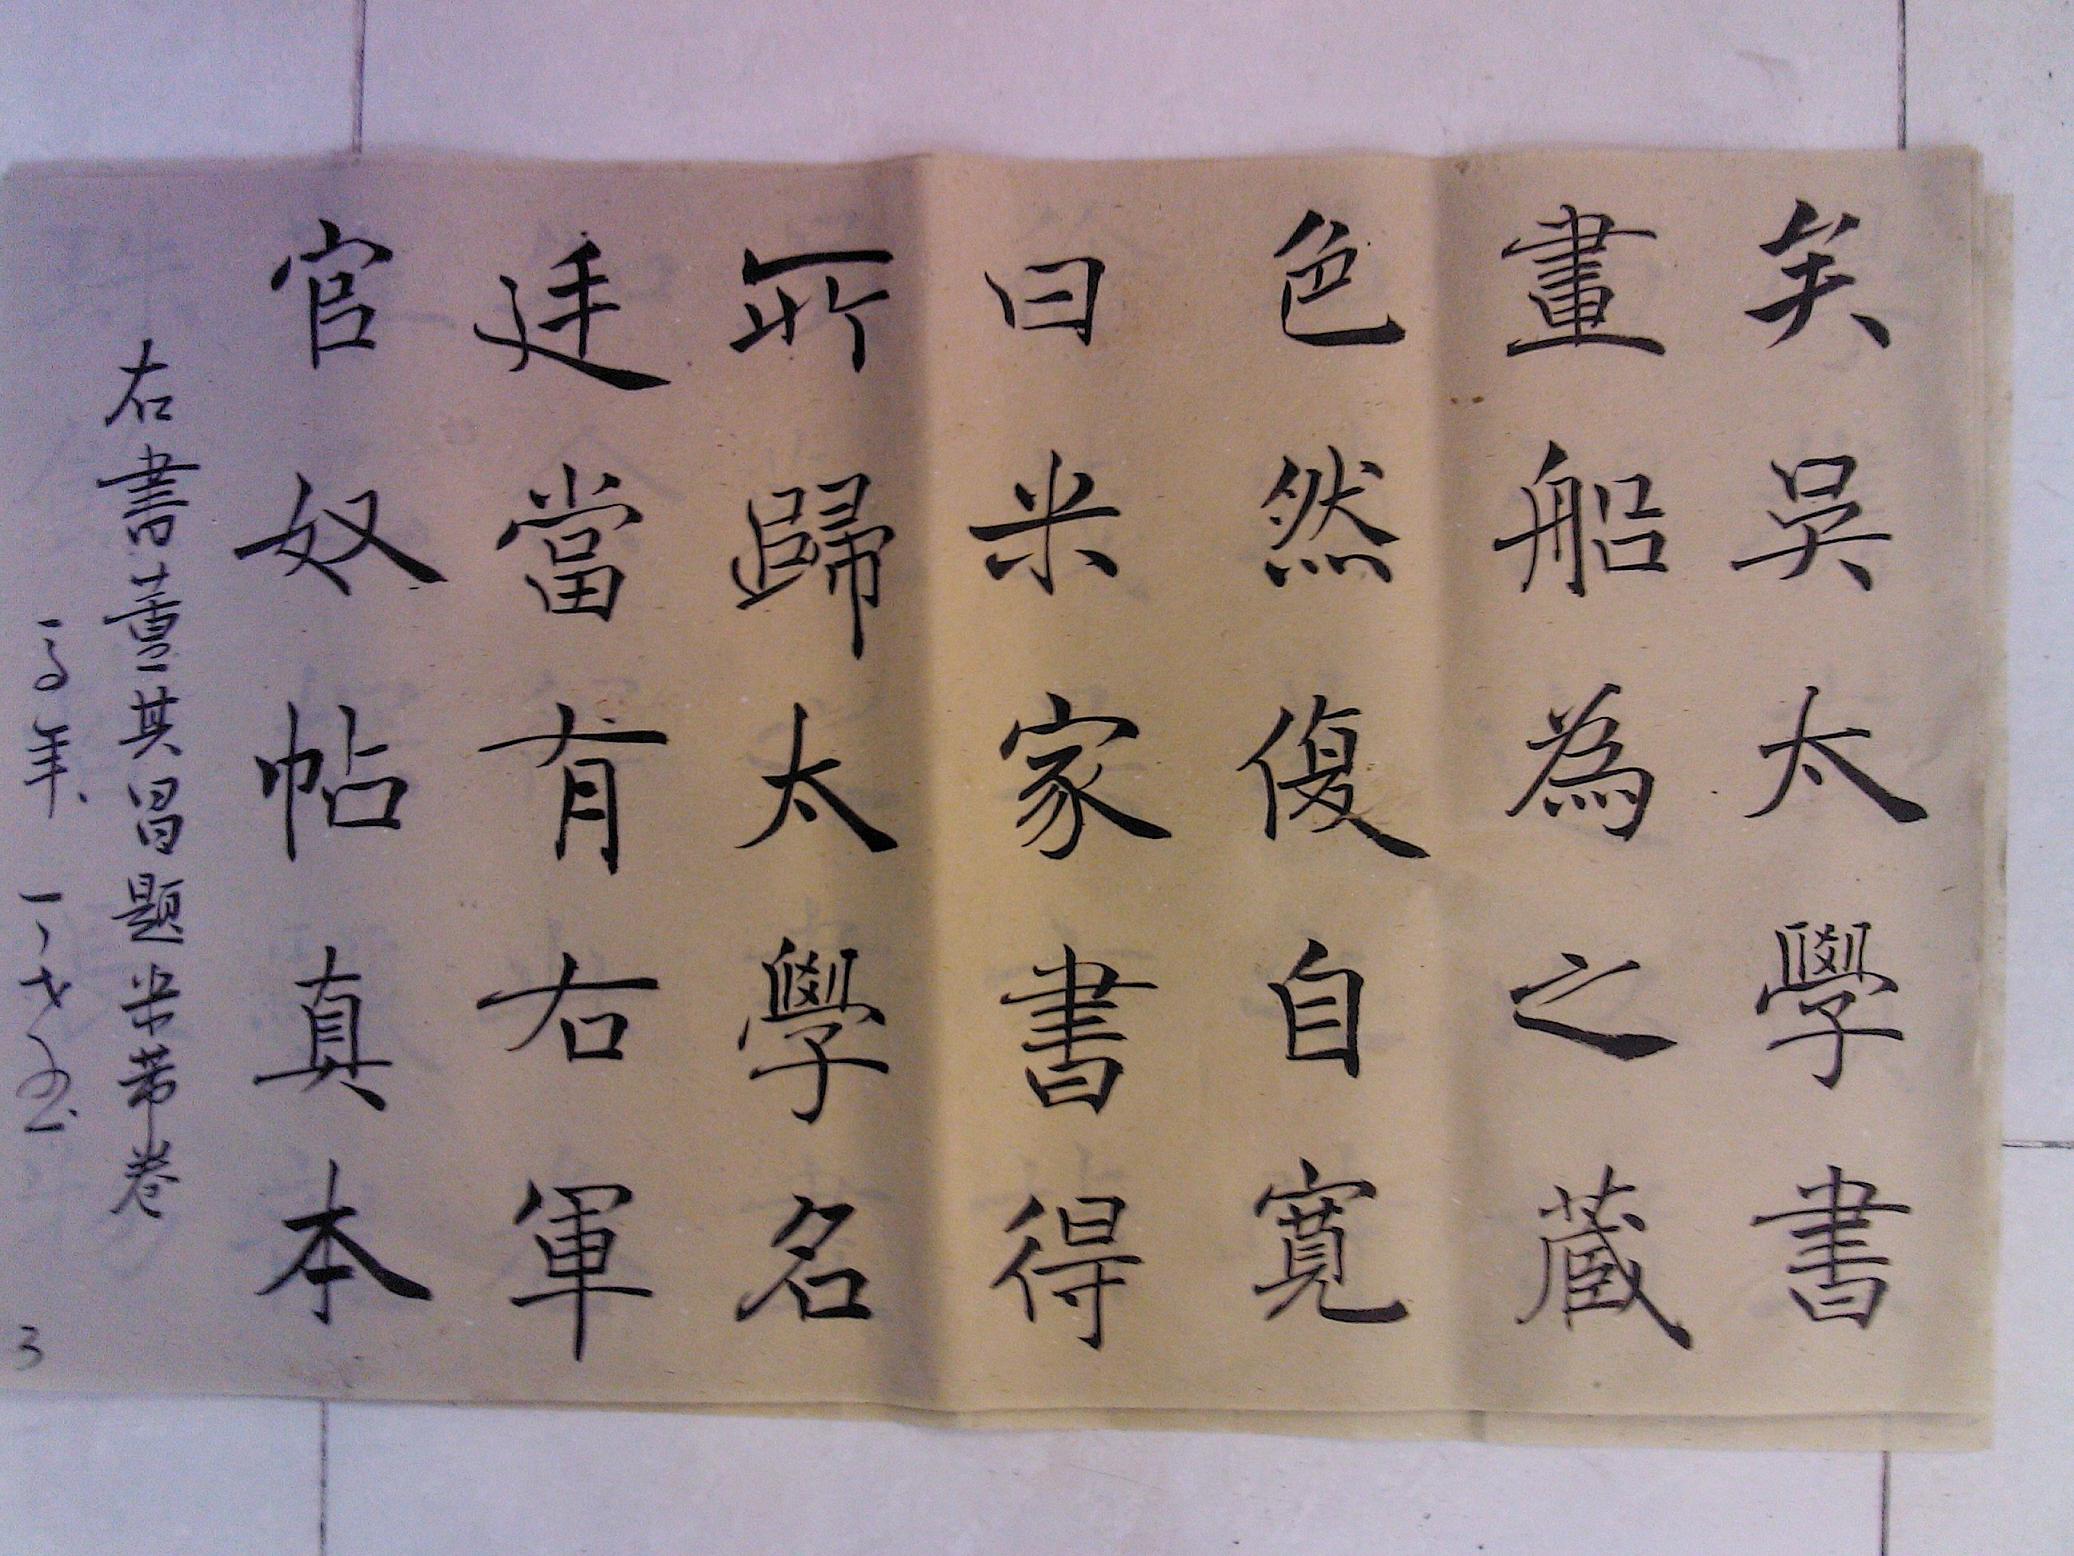 矣吴太學書
畫船為之藏
色然復自寬
曰米家書得
所歸太學名
廷當有右軍
官奴帖真本
右書董其昌題米芾卷
年
3